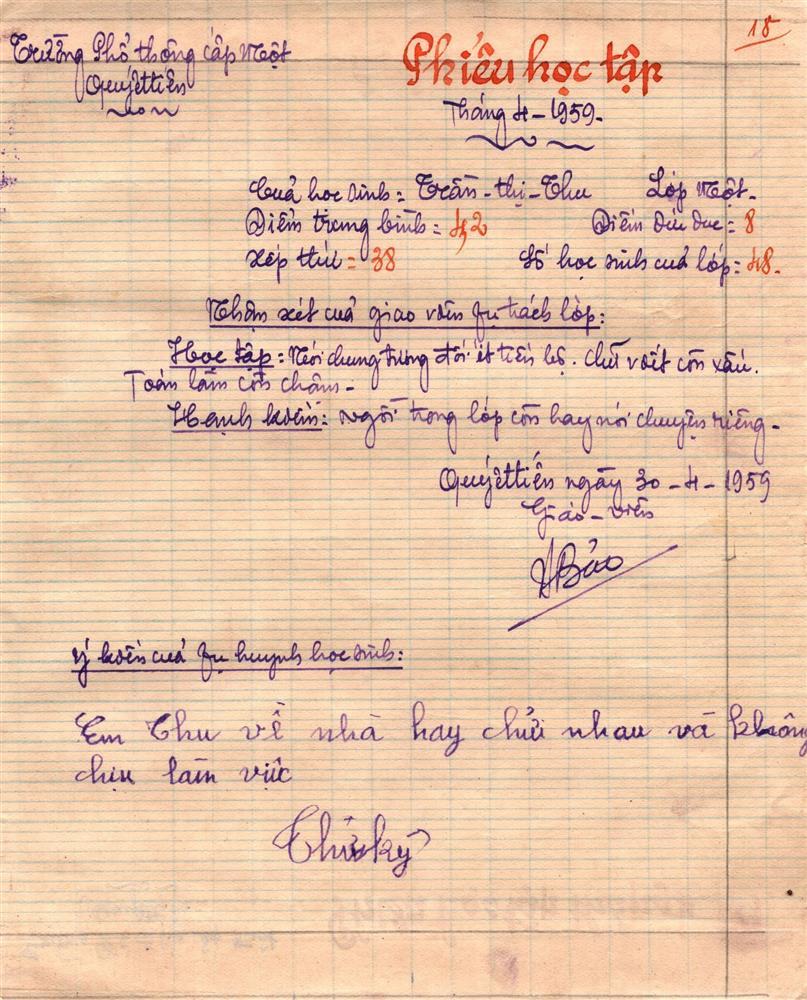 18
Trường Phổ thông cấp Một
Quyết tiến
Phiếu học tập
Tháng 4 - 1959.
Của học sinh: Trần - thị - Thu Lớp Một.
Điểm trung bình: 4,2 Điểm đức dục: 8
Xếp thứ: 38 Số học sinh của lớp: 48.
Nhận xét của giáo viên fụ trách lớp:
Học tập: Nói chung tương đối ít tiến bộ. Chữ viết còn xấu.
Toán làm còn chậm.
Hạnh kiểm: Ngồi trong lớp còn hay nói chuyện riêng.
Quyết tiến ngày 30 - 4 - 1959
Giáo - viên
Bảo
Ý kiến của fụ huynh học sinh:
Em Thu về nhà hay chửi nhau và không
chịu làm việc